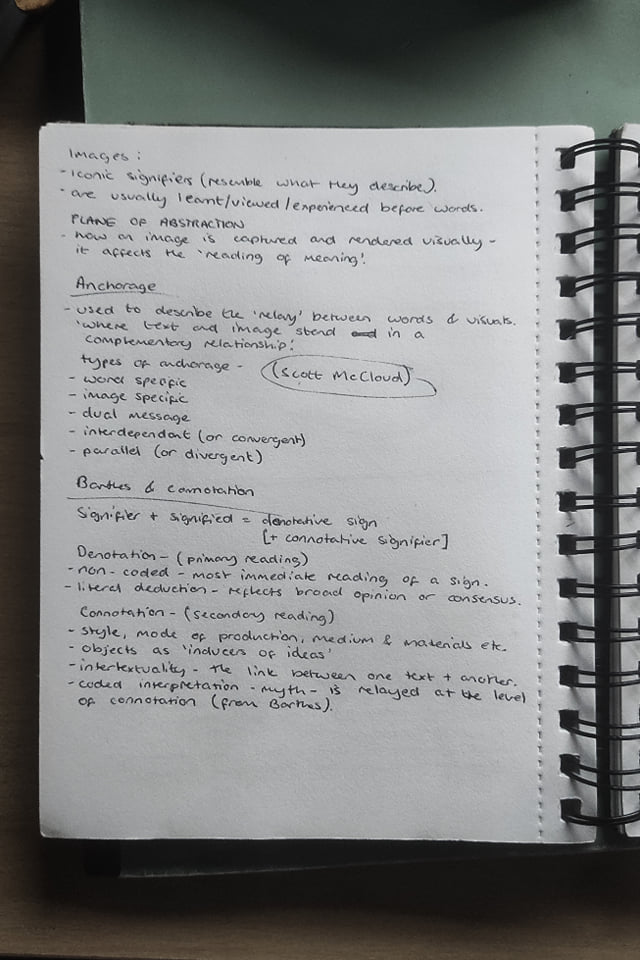 Images:
- iconic signifiers (resemble what they describe).
- are usually learnt/viewed/experienced before words.
PLANE OF ABSTRACTION
- how an image is captured and rendered visually -
it affects the 'reading of meaning'.
Anchorage
- used to describe the 'relay' between words & visuals.
'where text and image stand in a
complementary relationship'.
types of anchorage - (Scott McCloud)
- word specific
- image specific
- dual message
- interdependent (or convergent)
- parallel (or divergent)
Barthes & connotation
Signifier + signified = denotative sign
[+ connotative signifier]
Denotation - (primary reading)
- non-coded - most immediate reading of a sign.
- literal deduction - reflects broad opinion or consensus.
Connotation - (secondary reading)
- style, mode of production, medium & materials etc.
- objects as 'inducers of ideas'
- intertextuality - the link between one text + another.
- coded interpretation - myth - is relayed at the level
of connotation (from Barthes).